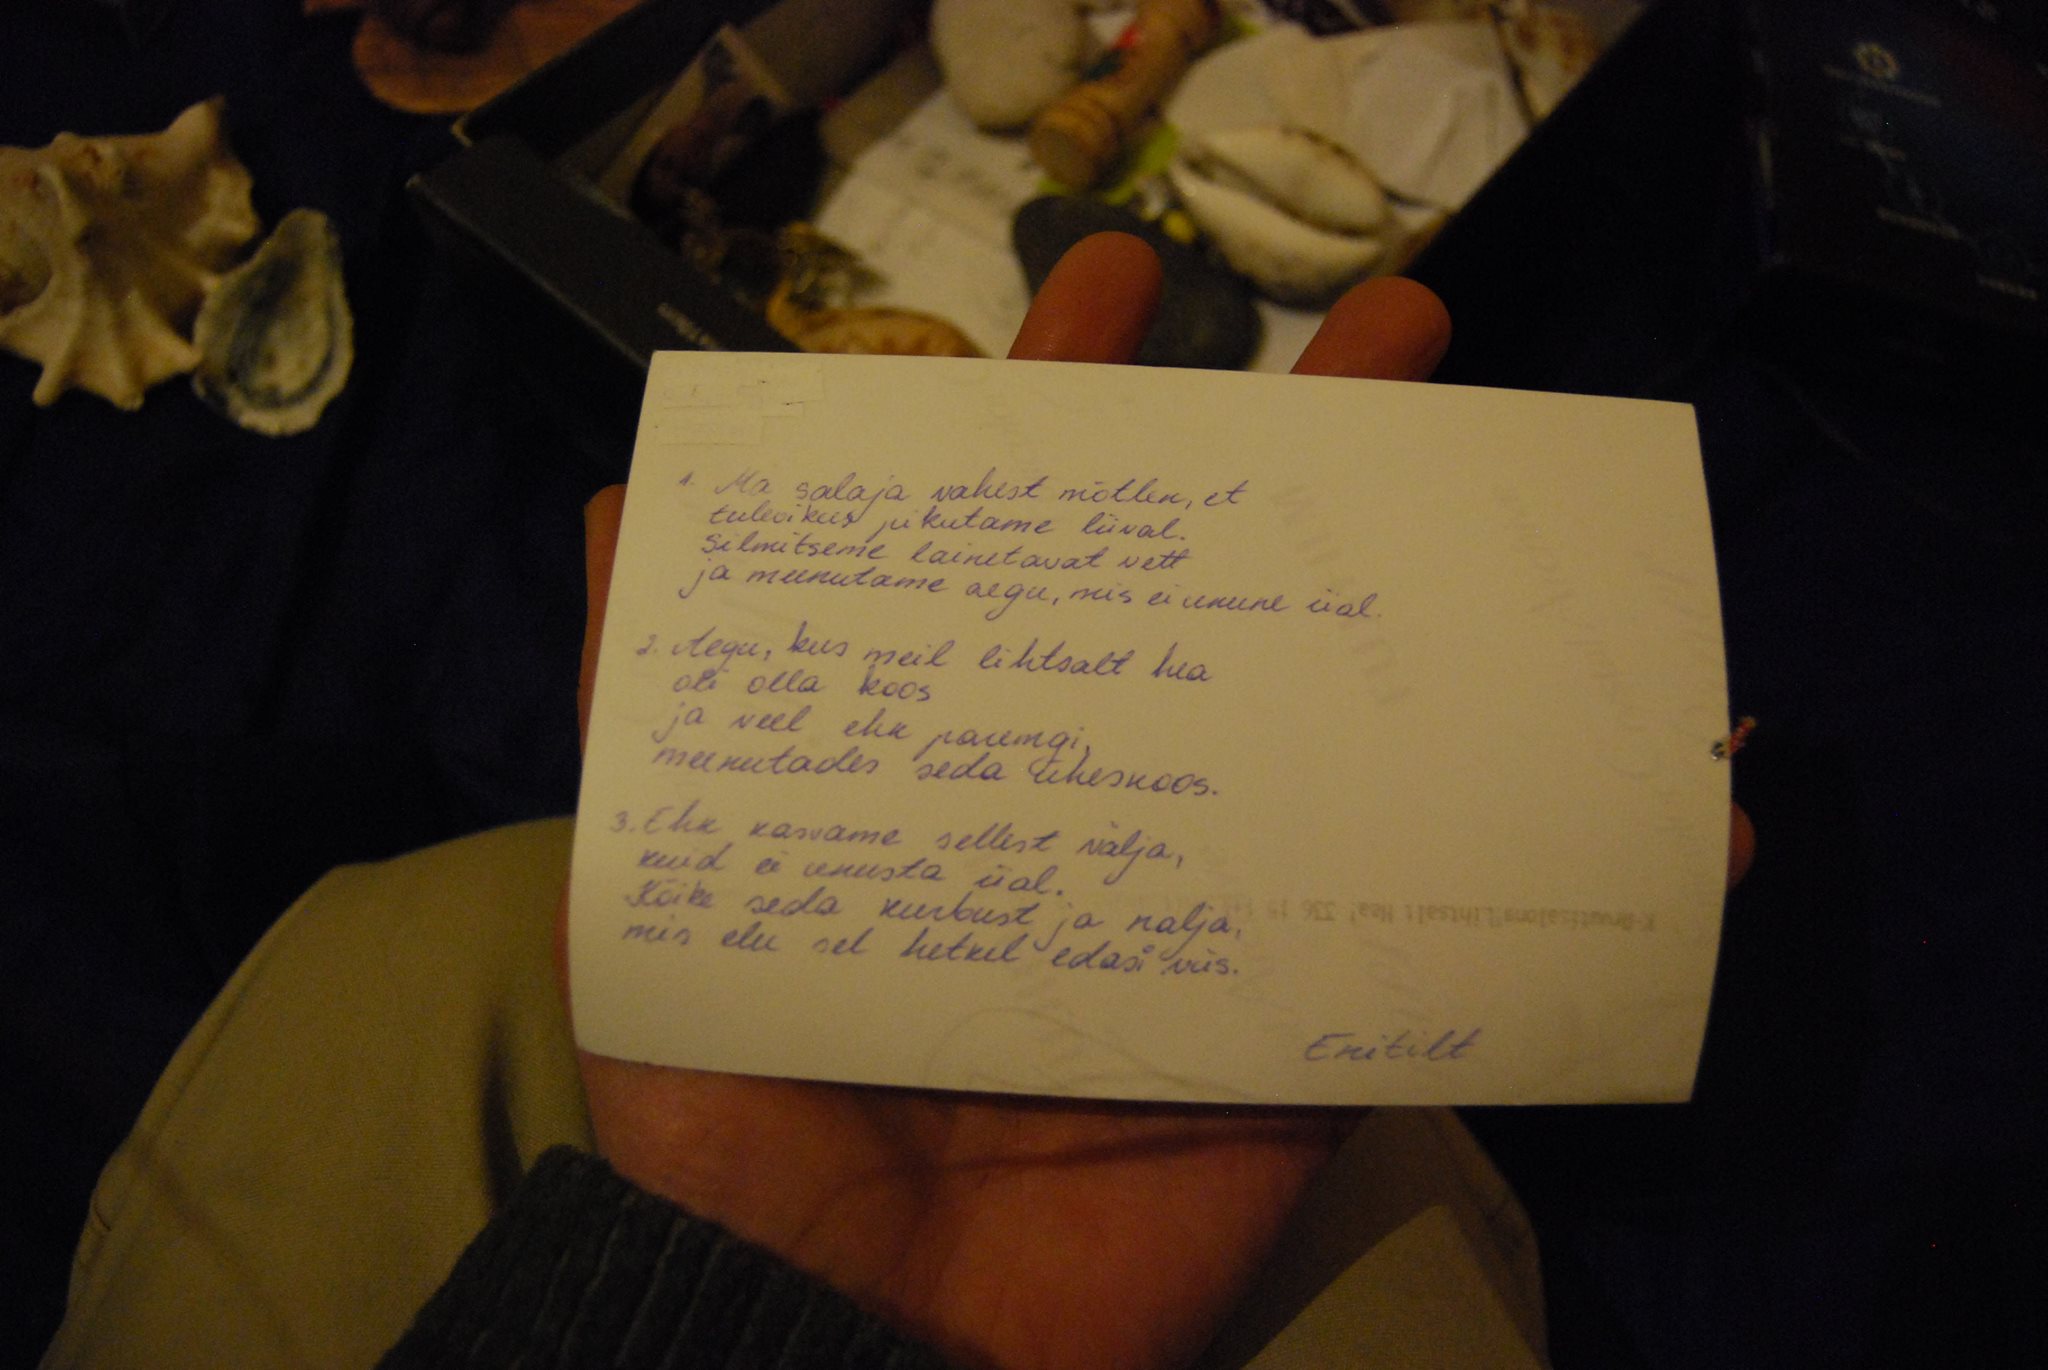 1. Ma salaja vahest mõtlen, et
tulevikus pikutame liival.
Silmitseme lainetavat vett
ja meenutame aegu, mis ei unune iial.
2. Aegu, kus meil lihtsalt hea
oli olla koos
ja veel ehk paremgi,
meenutades seda üheskoos.
3. Ehk kasvame sellest välja,
kuid ei unusta iial.
Kõike seda kurbust ja nalja,
mis elu sel hetkel edasi viis.
Enitilt